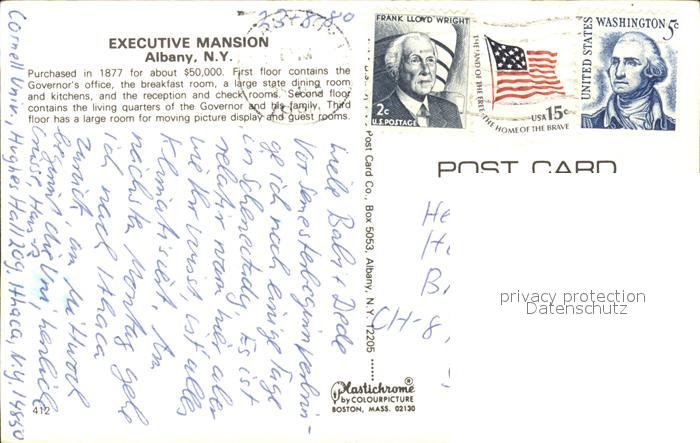 EXECUTIVE MANSION
Albany, N.Y.
Purchased in 1877 for about $50,000. First floor contains the
Governor's office, the breakfast room, a large state dining room
and kitchens, and the reception and check rooms. Second floor
contains the living quarters of the Governor and his family. Third
floor has a large room for moving picture display and guest rooms.
23.8.80
FRANK LLOYD WRIGHT
2c
U.S. POSTAGE
THE LAND OF THE FREE THE HOME OF THE BRAVE
USA 15c
UNITED STATES
WASHINGTON 5c
POST CARD
Liebe Babi + Dédé
Vor Semesterbeginn verbrin-
ge ich noch einige Tage
in Schenectady. Es ist
relativ warm hier aber
wie Ihr wisst ist alles
klimatisiert. Am
nächsten Montag gehe
ich nach Ithaca
zurück, am Mittwoch
beginnt die Uni, herzliche
Grüsse,
Cornell Univ., Hughes Hall 209, Ithaca, N.Y. 14850
Post Card Co., Box 5053, Albany, N.Y. 12205
He
H
B
CH-8
privacy protection
Datenschutz
Plastichrome
by COLOURPICTURE
BOSTON, MASS. 02130
412